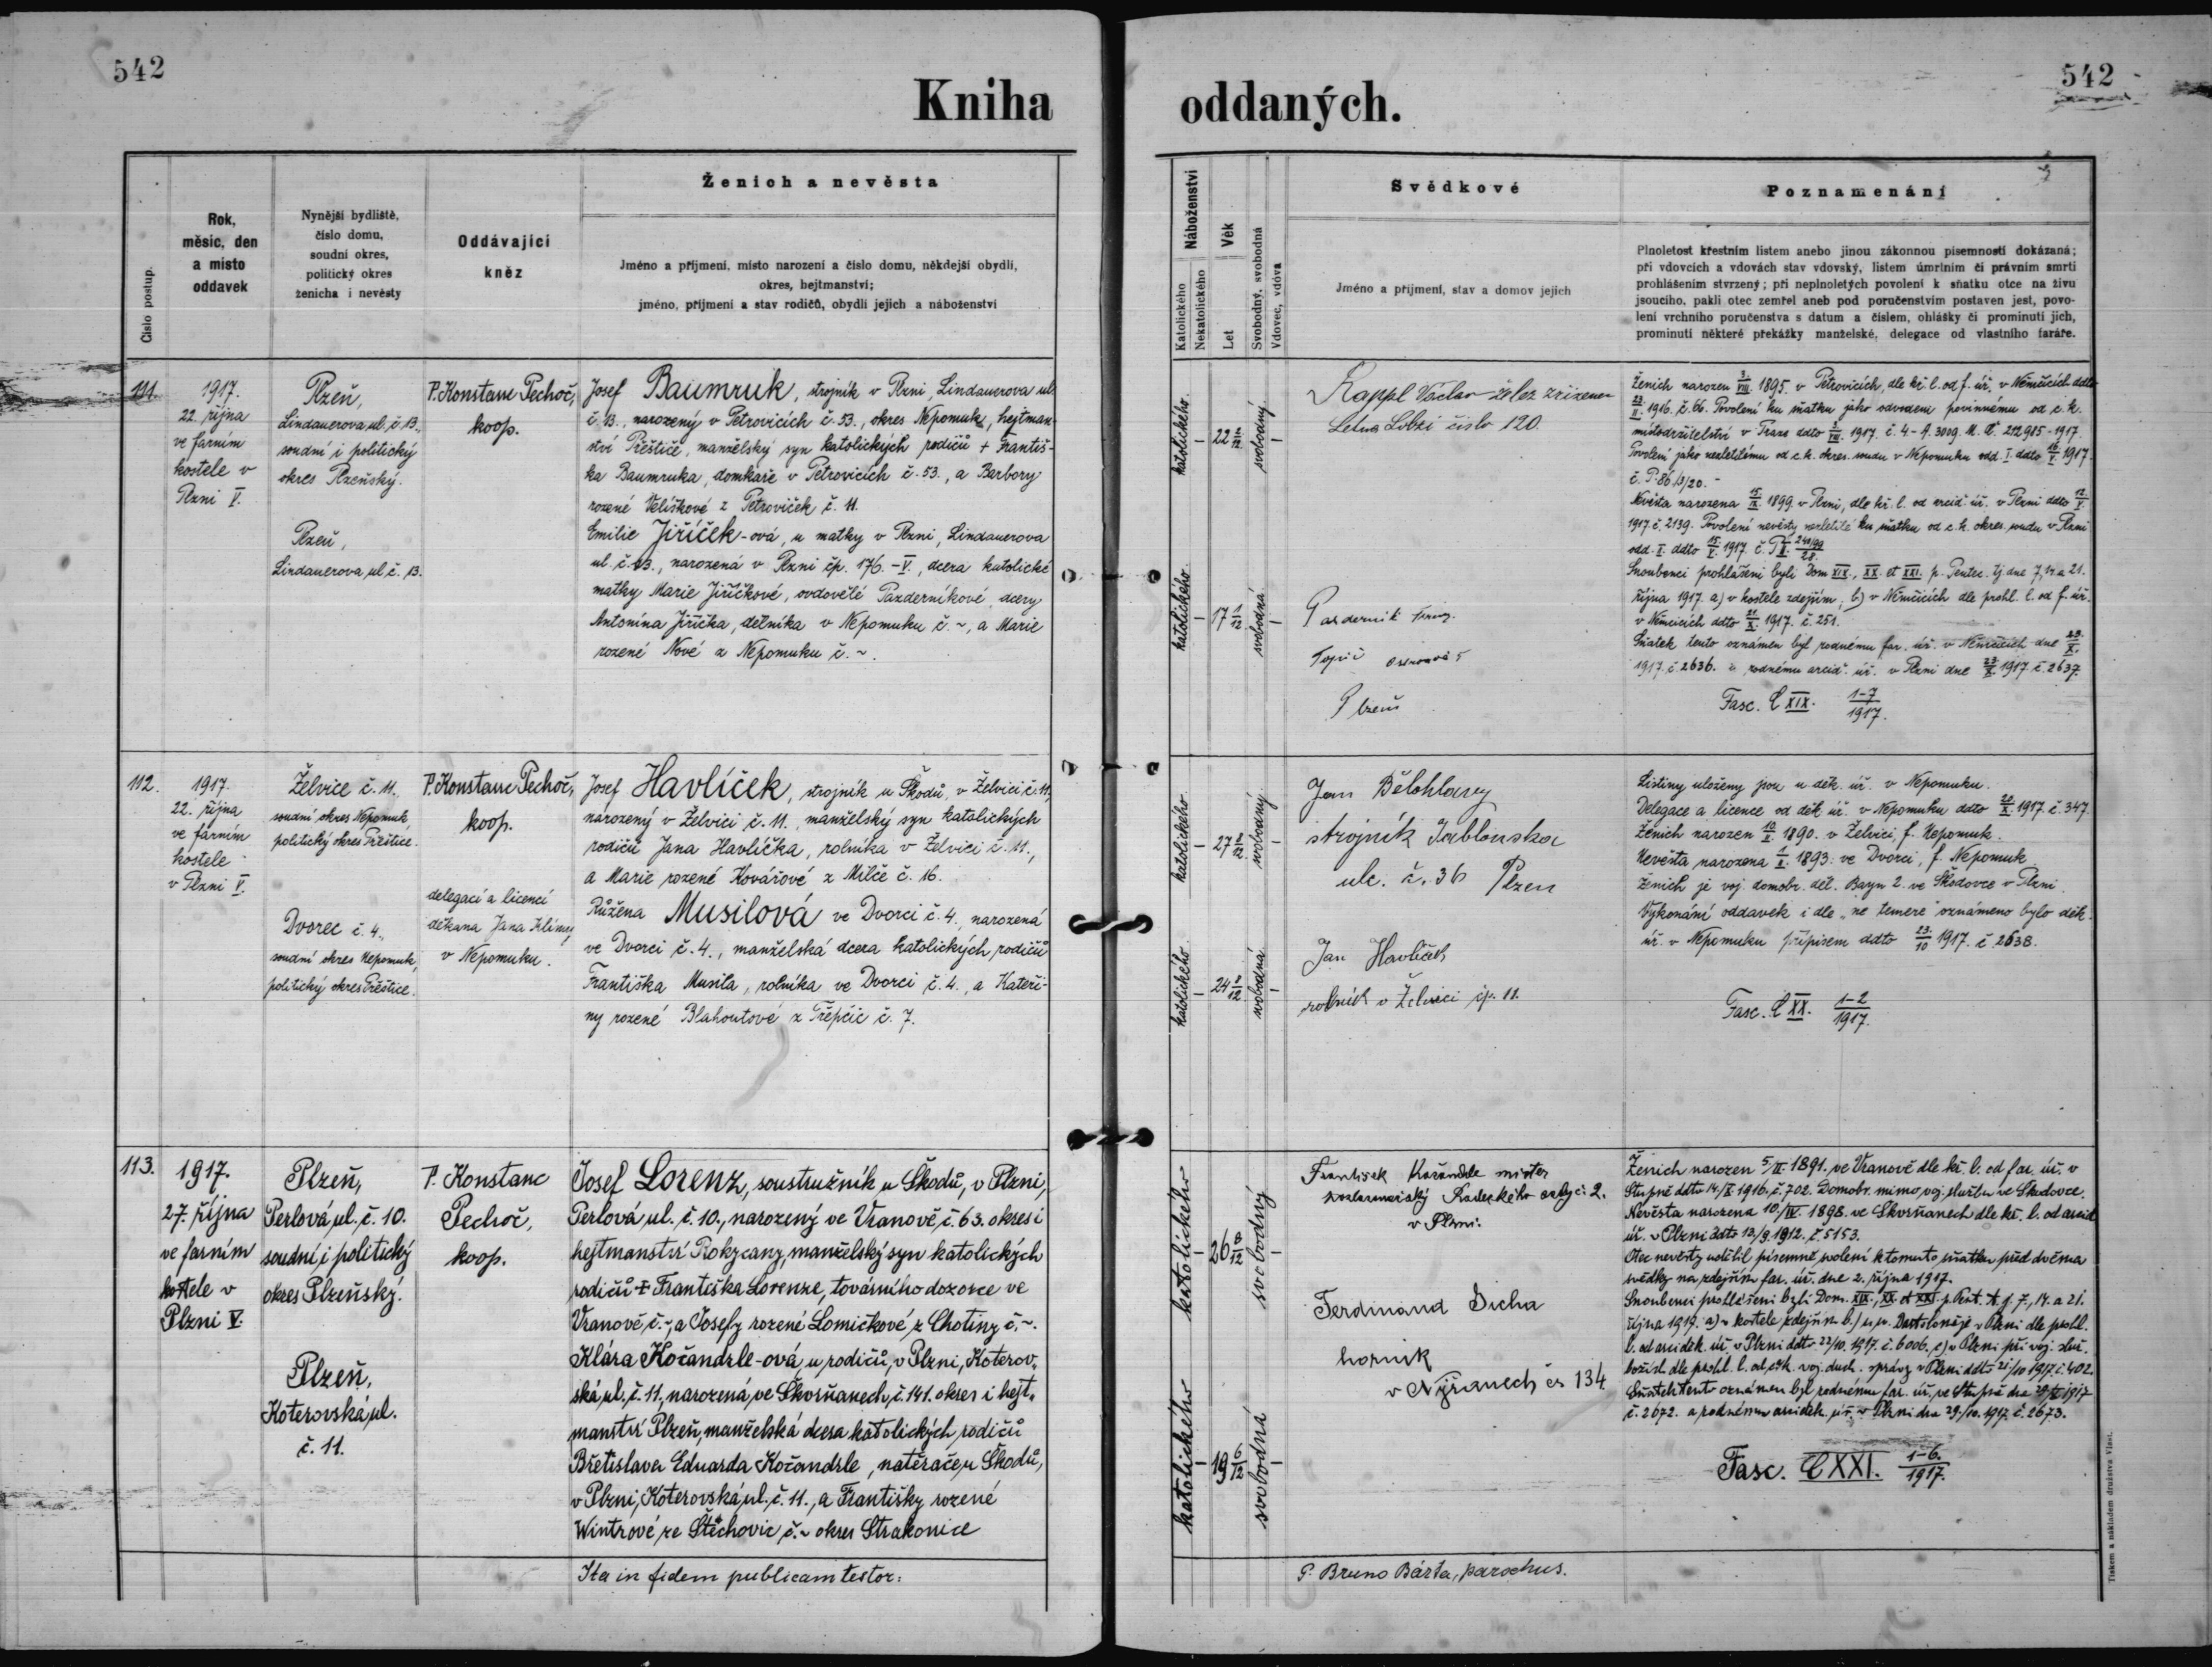 542
542
Kniha
oddaných.
Číslo postup.
Rok,
měsíc, den
a místo
oddavek
Nynější bydliště,
číslo domu,
soudní okres,
politický okres
ženicha i nevěsty
Oddávající
kněz
Ženich a nevěsta
Jméno a příjmení, místo narození a číslo domu, někdejší obydlí,
okres, hejtmanství;
jméno, příjmení a stav rodičů, obydlí jejich a náboženství
Náboženství
Katolického
Nekatolického
Věk
Let
Svobodný, svobodná
Vdovec, vdova
Svědkové
Jméno a příjmení, stav a domov jejich
Poznamenání
Plnoletost křestním listem anebo jinou zákonnou písemností dokázaná;
při vdovcích a vdovách stav vdovský, listem úmrtním či právním smrti
prohlášením stvrzený; při neplnoletých povolení k sňatku otce na živu
jsoucího, pakli otec zemřel aneb pod poručenstvím postaven jest, povo-
lení vrchního poručenstva s datum a číslem, ohlášky či prominutí jich,
prominutí některé překážky manželské, delegace od vlastního faráře.
111.
1917.
22. října
ve farním
kostele v
Plzni V.
Plzeň,
Lindauerova ul. č. 13.,
soudní i politický
okres Plzeňský.
Plzeň,
Lindauerova ul. č. 13.
P. Konstanc Pechoč,
koop.
Josef Baumruk, strojník v Plzni, Lindauerova ul.
č. 13., narozený v Petrovicích č. 53., okres Nepomuk, hejtman-
ství Přeštice, manželský syn katolických rodičů + Františ-
ka Baumruka, domkáře v Petrovicích č. 53., a Barbory
rozené Velíškové z Petroviček č. 11.
Emilie Jiříček-ová, u matky v Plzni, Lindauerova
ul. č. 13., narozená v Plzni čp. 176.-V., dcera katolické
matky Marie Jiříčkové, ovdovělé Pazderníkové, dcery
Antonína Jiříčka, dělníka v Nepomuku č. ~, a Marie
rozené Nové z Nepomuku č. ~.
katolického
–
22 2/12
svobodný
–
katolického
–
17 1/12
svobodná
–
Kappl Václav želez zřízenec
Letna Lobzi číslo 120.
Pazderník
Topič
Plzeň
Ženich narozen 3./VIII. 1895. v Petrovicích, dle kř. l. od f. úř. v Němčicích ddto
23./II. 1916. č. 66. Povolení ku sňatku jako odvodem povinnému od c. k.
místodržitelství v Praze ddto 3./VIII. 1917. č. 4-A. 3009. M. O. 212985-1917.
Povolení jako nezletilému od c. k. okres. soudu v Nepomuku odd. I. ddto 16./X. 1917.
č. P. 86/3/20. -
Nevěsta narozena 15./IX. 1899. v Plzni, dle kř. l. od arciď. úř. v Plzni ddto 12./X.
1917. č. 2139. Povolení nevěsty nezletilé ku sňatku od c. k. okres. soudu v Plzni
odd. I. ddto 15./X. 1917.
Snoubenci prohlášeni byli Dom XIX., XX. et XXI. p. Pentec. tj. dne 7., 14. a 21.
října 1917. a) v kostele zdejším, b) v Němčicích dle prohl. l. od f. úř.
v Němčicích ddto 21./X. 1917. č. 251.
Sňatek tento oznámen byl rodnému far. úř. v Němčicích dne 23./X.
1917. č. 2636. a rodnému arciď. úř. v Plzni dne 23./X. 1917. č. 2637.
Fasc. CXIX. 1-7/1917.
112.
1917.
22. října
ve farním
kostele
v Plzni V.
Želvice č. 11.,
soudní okres Nepomuk,
politický okres Přeštice.
Dvorec č. 4.,
soudní okres Nepomuk,
politický okres Přeštice.
P. Konstanc Pechoč,
koop.
delegací a licencí
děkana Jana Klímy
v Nepomuku.
Josef Havlíček, strojník u Škodů, v Želvici č. 11,
narozený v Želvici č. 11., manželský syn katolických
rodičů Jana Havlíčka, rolníka v Želvici č. 11.,
a Marie rozené Kovářové z Milče č. 16.
Růžena Musilová ve Dvorci č. 4., narozená
ve Dvorci č. 4., manželská dcera katolických rodičů
Františka Musila, rolníka ve Dvorci č. 4., a Kateři-
ny rozené Blahoutové z Třepčic č. 7.
katolického
–
27 /12
svobodný
–
katolického
–
24 /12
svobodná
–
Jan Bělohlavy
strojník Jablonska
ulc. č. 36 Plzen
Jan Havlíček
rolník v Želvici čp. 11.
Listiny uloženy jsou u děk. úř. v Nepomuku.
Delegace a licence od děk. úř. v Nepomuku ddto 20./X. 1917. č. 347.
Ženich narozen 10./X. 1890. v Želvici, f. Nepomuk.
Nevěsta narozena 1./X. 1893. ve Dvorci, f. Nepomuk.
Ženich je voj. domobr. děl. Bagn 2. ve Škodovce v Plzni.
Vykonání oddavek i dle „ne temere" oznámeno bylo děk.
úř. v Nepomuku přípisem ddto 23./10 1917. č. 2638.
Fasc. CXX. 1-2/1917.
113.
1917.
27. října
ve farním
kostele v
Plzni V.
Plzeň,
Perlová ul. č. 10.
soudní i politický
okres Plzeňský.
Plzeň,
Koterovská ul.
č. 11.
P. Konstanc
Pechoč,
koop.
Josef Lorenz, soustružník u Škodů, v Plzni,
Perlová ul. č. 10., narozený ve Vranově, č. 63. okres i
hejtmanství Rokycany, manželský syn katolických
rodičů + Františka Lorenze, továrního dozorce ve
Vranově, č. ~, a Josefy rozené Lomičkové z Chotiny č. ~.
Klára Kočandrle-ová u rodičů, v Plzni, Koterov-
ská ul. č. 11, narozená ve Skvrňanech, č. 141. okres i hejt-
manství Plzeň, manželská dcera katolických rodičů
Břetislava Eduarda Kočandrle, natěrače u Škodů,
v Plzni, Koterovská ul. č. 11., a Františky rozené
Wintrové ze Štěchovic č. ~ okres Strakonice
katolického
–
26 8/12
svobodný
–
katolického
–
19 6/12
svobodná
–
František Kočandrle mistr
Radeckého č. 2.
v Plzni.
Ferdinand Sicha
horník
v Nýřanech čs 134
Ženich narozen 5/II. 1891. ve Vranově dle kř. l. od far. úř. v
Stupně ddto 14/X 1916. č. 702. Domobr. mimo voj. službu ve Škodovce.
Nevěsta narozena 10/IV. 1898. ve Skvrňanech dle kř. l. od arcid
úř. v Plzni ddto 13/9. 1912. č. 5153.
Otec nevěsty udělil písemně svolení k tomuto sňatku před dvěma
svědky na zdejším far. úř. dne 2. října 1917.
Snoubenci prohlášeni byli Dom. XIX., XX. et XXI. p. Pent. t. j. 7., 14. a 21.
října 1919. a) v kostele zdejším b.) u sv. Bartoloměje v Plzni dle prohl.
l. od arcidek. úř. v Plzni ddto 22/10. 1917. č. 6006., c) v Plzni při voj. služ.
božích dle prohl. l. od voj. duch. správy v Plzni ddto 21/10 1917. č. 402.
Sňatek tento oznámen byl rodnému far. úř. ve Stupně dne 29/X 1917
č. 2672. a rodnému arcidek. úř. v Plzni dne 29./10. 1917. č. 2673.
Fasc. CXXI. 1-6./1917.
Ita in fidem publicam testor:
P. Bruno Bárta, parochus.
Tiskem a nákladem družstva Vlast.